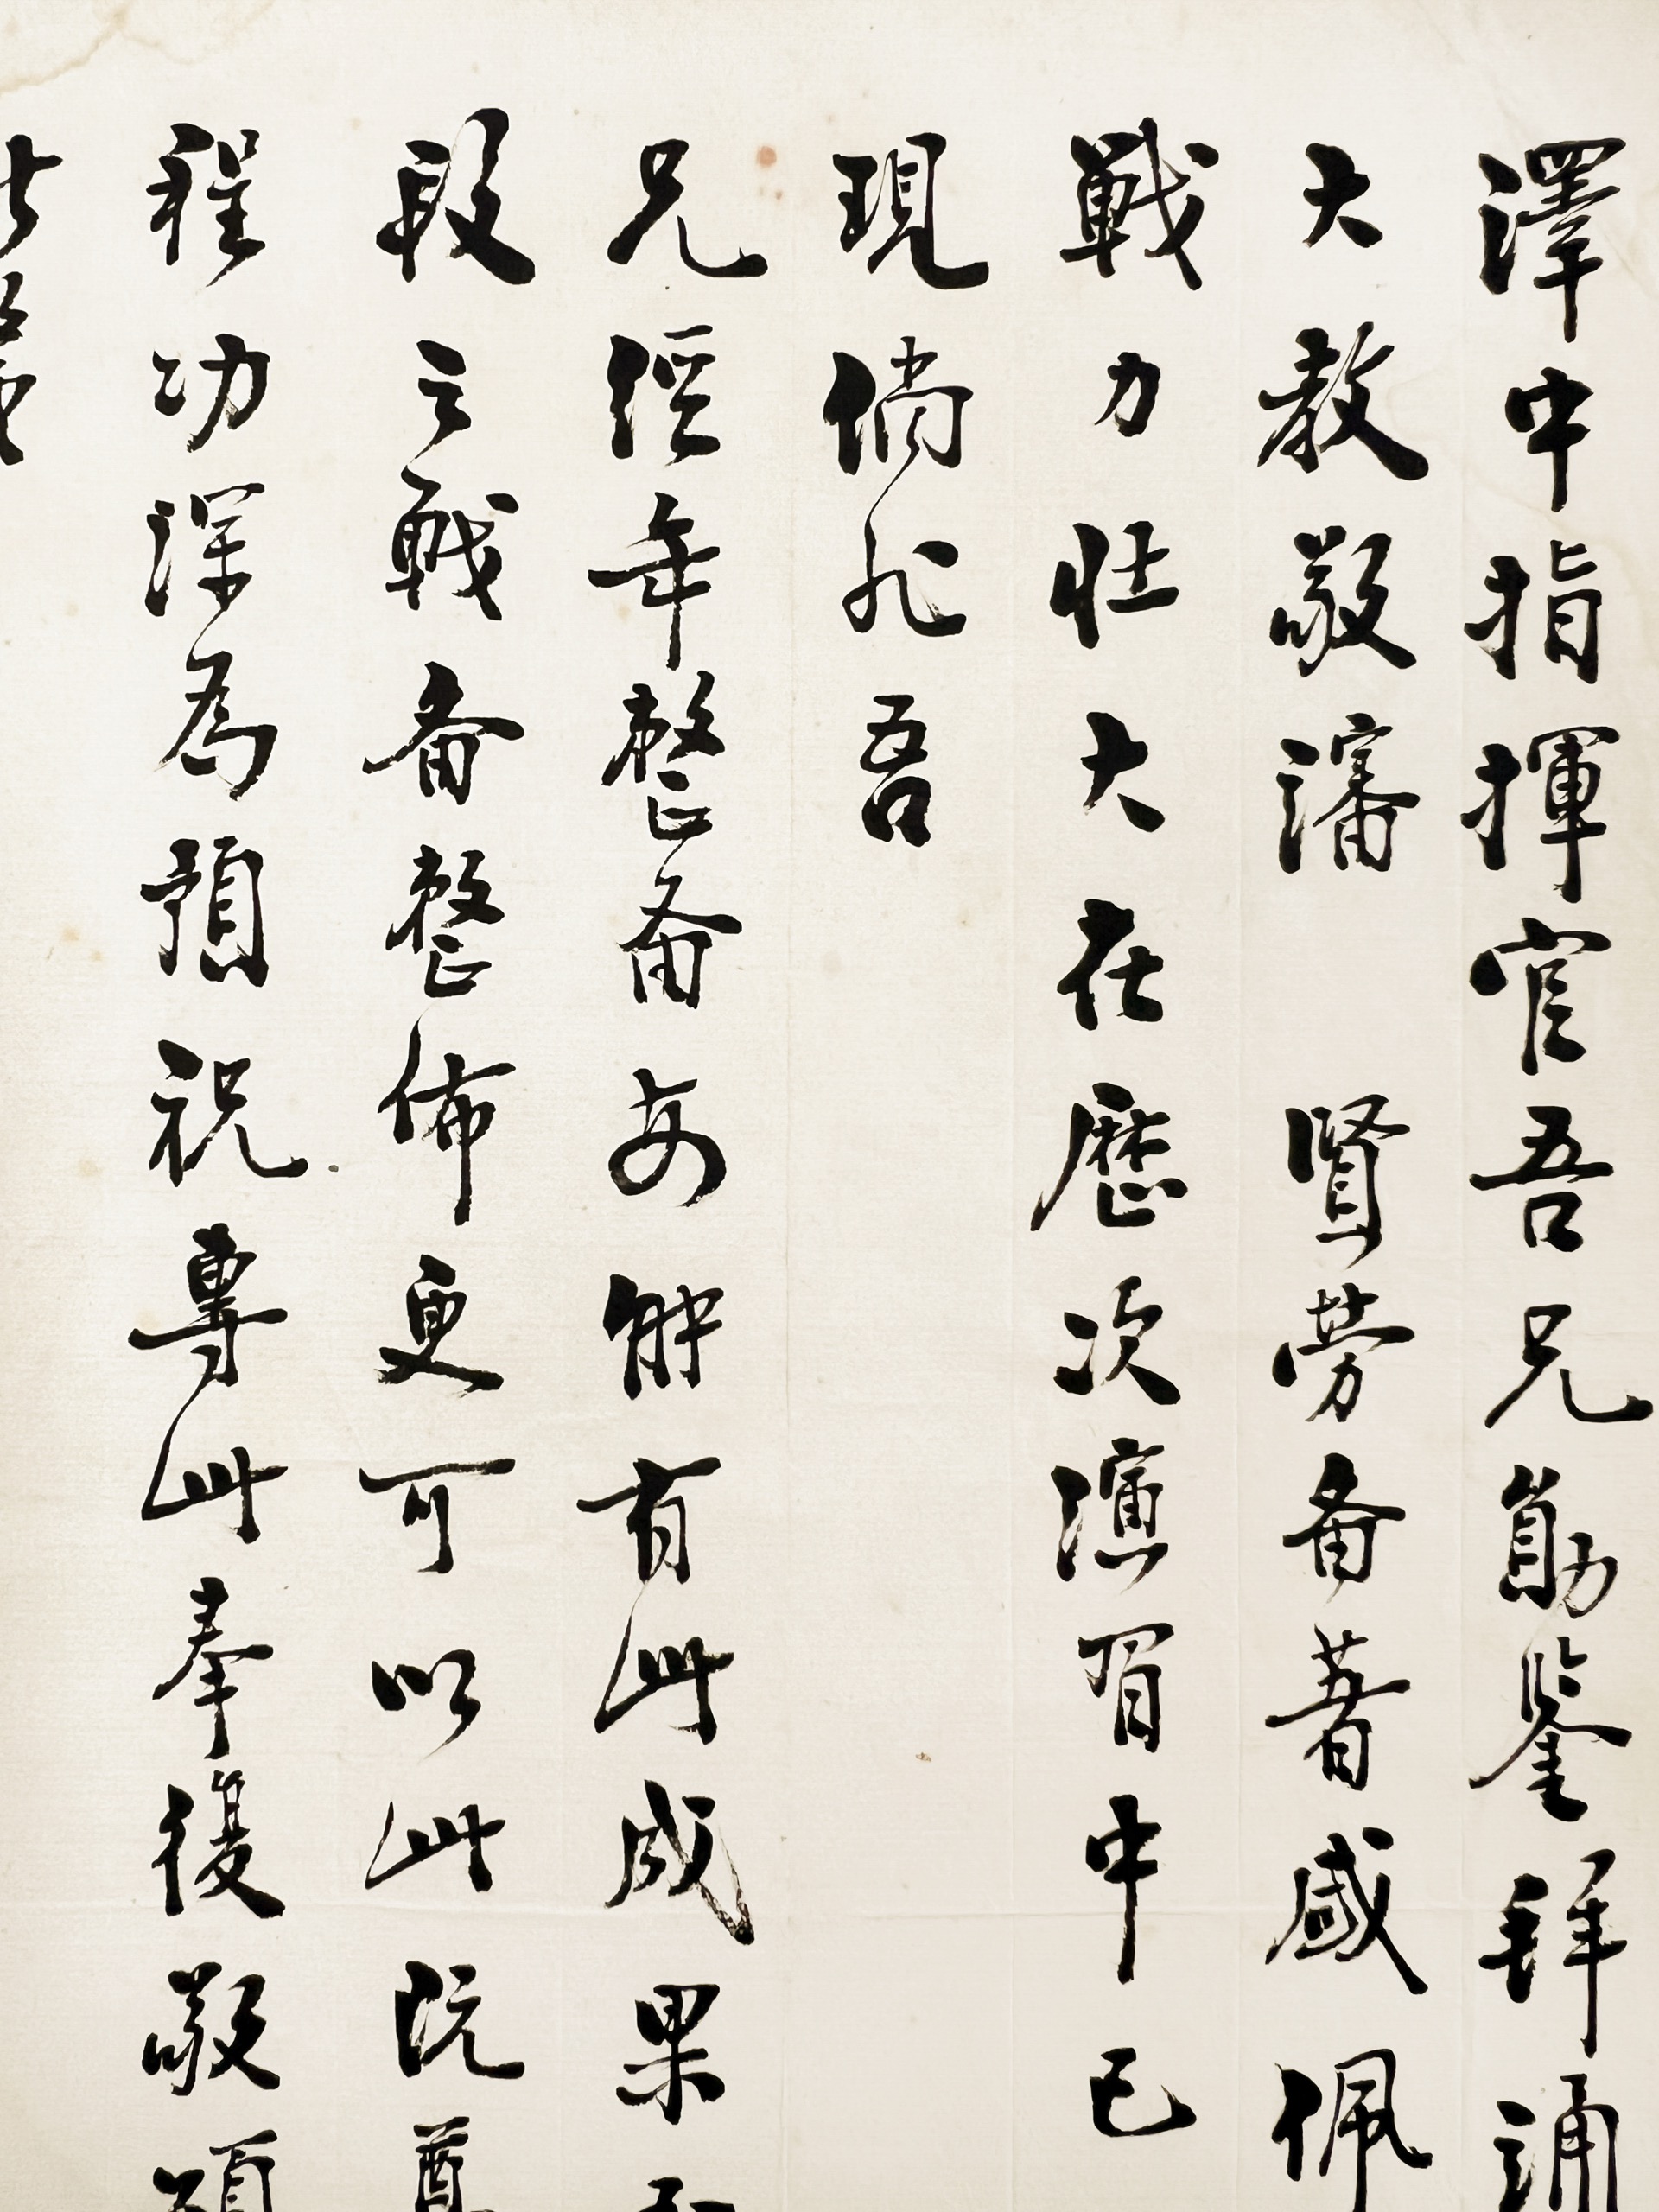 澤中指揮官吾兄勛鑒拜誦
大教敬瀋 賢勞备著感佩
戰力壯大在歷次演習中已
現倘非吾
兄經年整备安能有此成果
段之戰备整佈更可以此既
程功深為預祝專此奉復敬頌